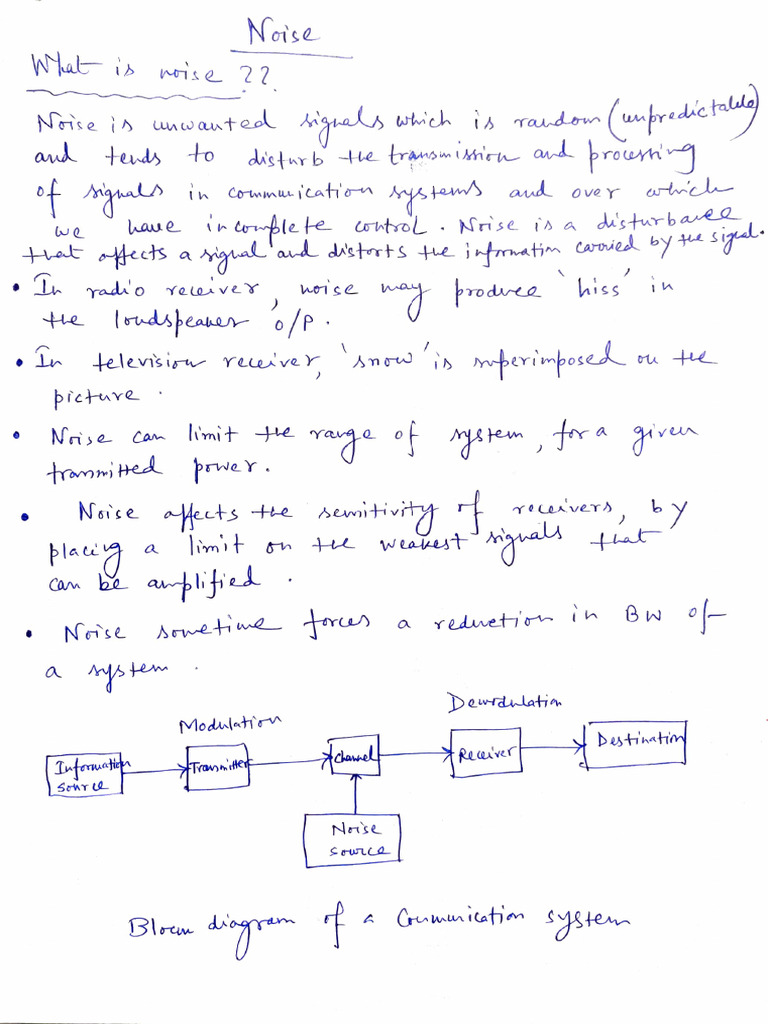 Noise
What is noise ??
Noise is unwanted signals which is random (unpredictable)
and tends to disturb the transmission and processing
of signals in communication systems and over which
we have incomplete control. Noise is a disturbance
that affects a signal and distorts the information carried by the signal.
• In radio receiver, noise may produce 'hiss' in
the loudspeaker o/p.
• In television receiver, 'snow' is superimposed on the
picture.
• Noise can limit the range of system, for a given
transmitted power.
• Noise affects the sensitivity of receivers, by
placing a limit on the weakest signals that
can be amplified.
• Noise sometime forces a reduction in BW of
a system.
Modulation
Demodulation
Information
source
Transmitter
Channel
Receiver
Destination
Noise
source
Block diagram of a Communication system